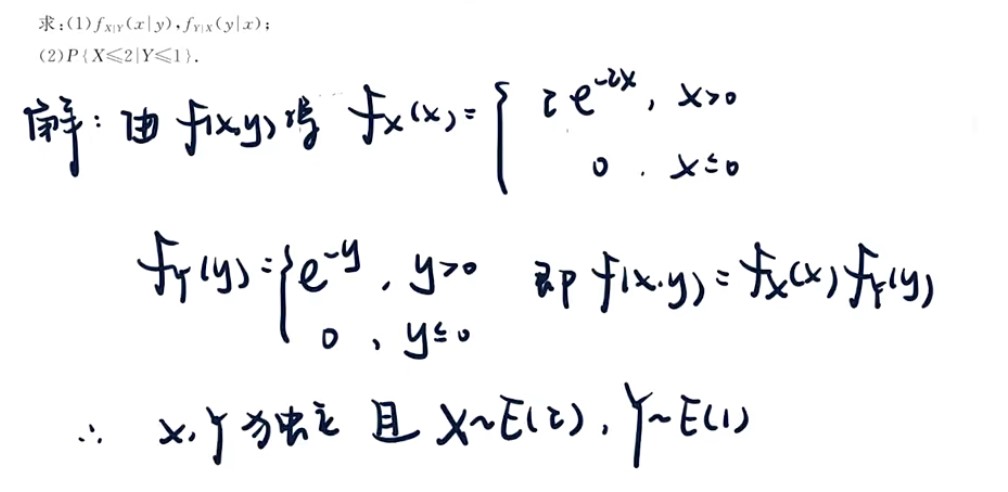 求:(1)f_{X|Y}(x|y),f_{Y|X}(y|x);
(2)P{X≤2|Y≤1}.
解:由 f(x,y)得 f_X(x)={ 2e^{-2x}, x>0
0 , x≤0
f_Y(y)={ e^{-y}, y>0 即 f(x,y)=f_X(x)f_Y(y)
0 , y≤0
∴ X,Y为独立 且 X~E(2), Y~E(1)